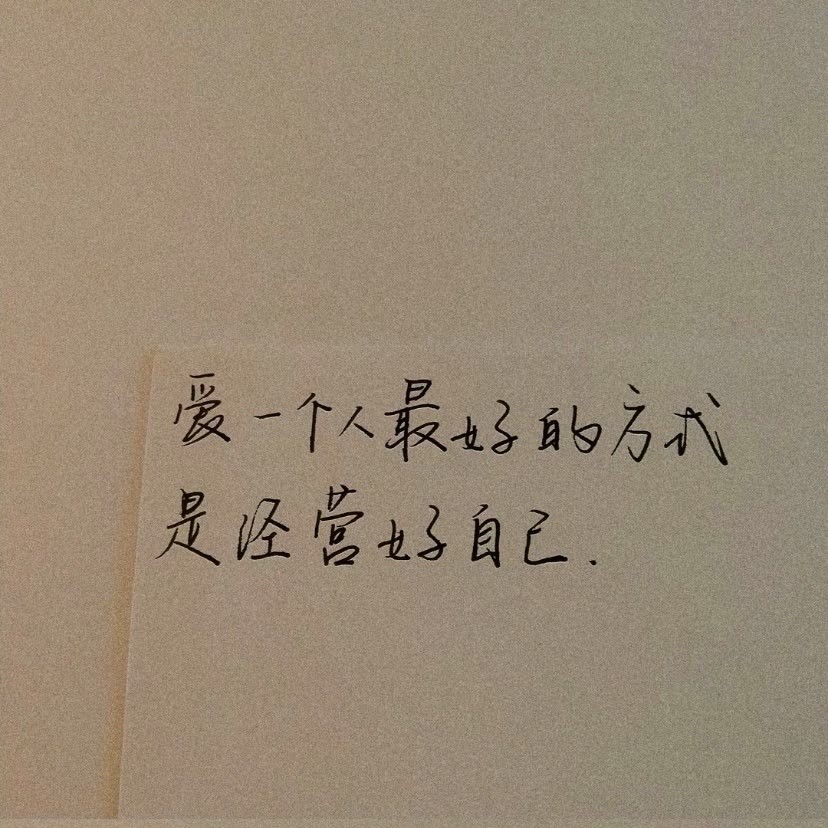 爱一个人最好的方式
是经营好自己.